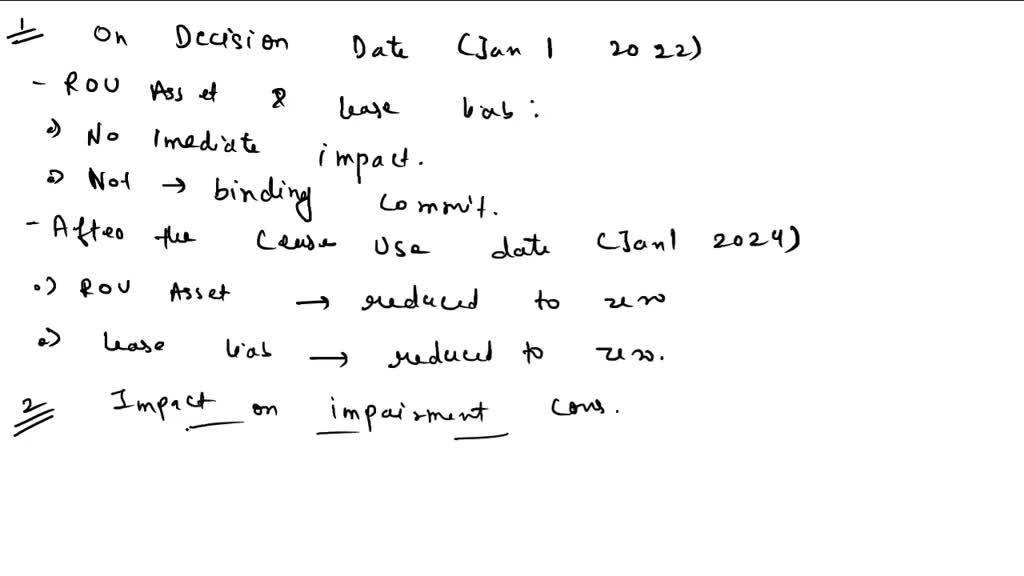 1 On Decision Date (Jan 1 2022)
- ROU Asset & lease liab:
•) No Imediate impact.
•) Not → binding commit.
- After the Cease Use date (Jan 1 2024)
•) ROU Asset → reduced to zero
•) lease liab → reduced to zero.
2 Impact on impairment cons.